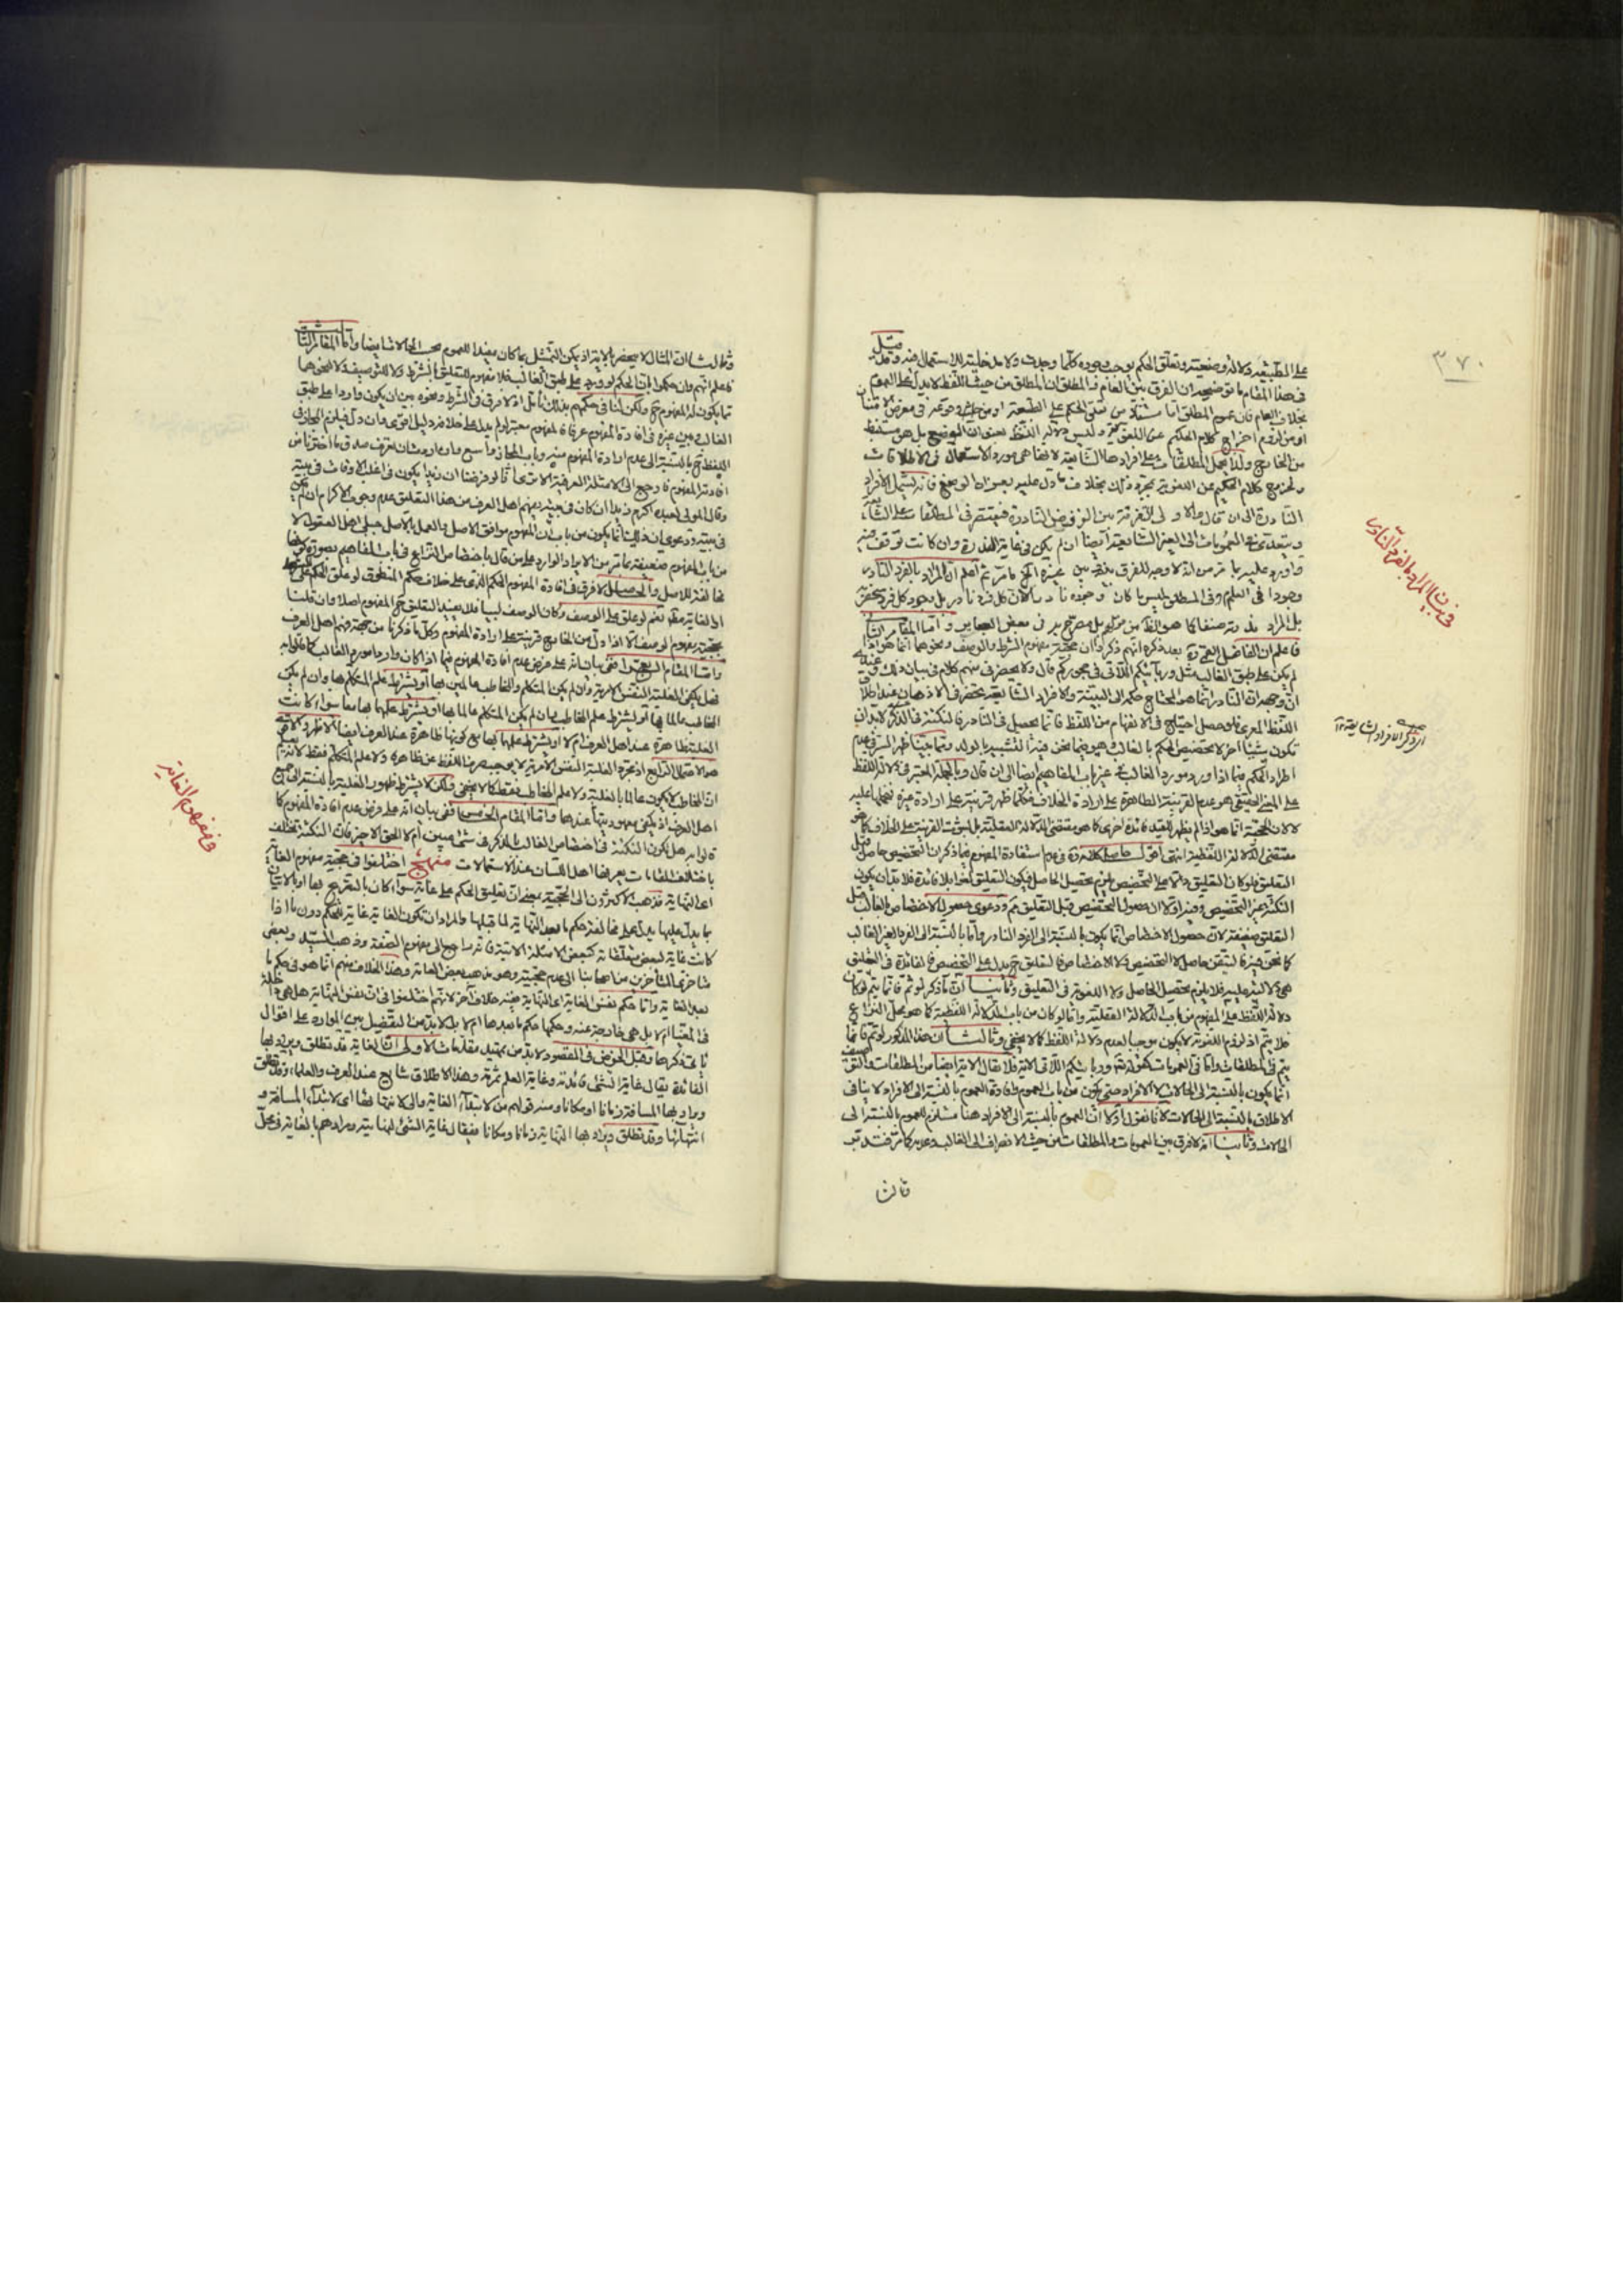 ٣٧٠
على الطبيعة دلالة وضعية وتعلّق الحكم يوجب وجوده كلّما وجدت ولا مدخلية للاستعمال فيه وقيل
في هذا المقام ما توضيحه ان الفرق بين العام والمطلق ان المطلق من حيث اللفظ لا يدل على العموم
بخلاف العام فان عموم المطلق امّا مستفاد من تعلق الحكم على الطبيعة او من حيث وقوعه في معرض الامتنان
او من لزوم اخراج كلام الحكيم عن اللغوية وليس دلالة اللفظ بعنوان الوضع بل هو مستنبط
من الخارج ولذا يحمل المطلقات على افرادها الشايعة لانها هي مورد الاستعمال في الاطلاقات
وتخرج كلام الحكيم عن اللغوية بمجرد ذلك بخلاف ما دل عليه بعنوان الوضع فانه يشمل الافراد
النادرة الى ان قال والاولى التفرقة بين الفروض النادرة فيقتصر في المطلقات على الشايعة
ويتعدى في العمومات الى الغير الشايعة ايضا ان لم يكن في غاية الندرة وان كانت توقف فيه
واورد عليه بما مر من انه لا وجه للفرق بينه وبين غيره الخ ما مر ثم اعلم ان المراد بالفرد النادر
وجودا في العلم وفي المطلق ليس ما كان وجوده نادرا لان كل فرد نادر بل وجود كل فرد منحصر
بل المراد ندرته صنفا كما هو الظاهر من كلامهم بل مصرح به في بعض العباير وامّا المقام الثاني
فاعلم ان الفاضل القمي ره بعد ذكره انهم ذكروا ان حجية مفهوم الشرط والوصف ونحوهما انما هو اذا
لم يكن على طبق الغالب مثل وربائبكم اللاتي في حجوركم قال ولا يحضرني منهم كلام في بيان ذلك وعندي
انّ وجهه ان النادر انما هو المحتاج حكمه الى التنبيه والافراد الشايعة تحضر في الاذهان عند اطلاق
اللفظ المعرى فلو حصل احتياج في الانفهام من اللفظ فانما يحصل في النادر فالنكتة في الذكر لابد ان
تكون شيئا آخر لا تخصيص الحكم بالغالب وهو فيما نحن فيه التشبيه بالولد ومما بيّنا ظهر السر في عدم
اطراد الحكم فيما اذا ورد مورد الغالب في غير باب المفاهيم ايضا الى ان قال وبالجملة المعتبر في دلالة اللفظ
على المعنى الحقيقي هو عدم القرينة الظاهرة على ارادة الخلاف فكلما ظهر قرينة على ارادة غيره نحملها عليه
لا لان الحجية انما هو اذا لم يظهر للقيد فائدة اخرى كما هو مقتضى الدلالة العقلية بل لثبوت القرينة على الخلاف كما هو
مقتضى الدلالة اللفظية انتهى اقول حاصل كلامه ره في عدم استفادة المفهوم فيما ذكر ان التخصيص حاصل قبل
التعليق فلو كان التعليق دالا على التخصيص يلزم تحصيل الحاصل فيكون التعليق لغوا بلا فائدة فلابد ان يكون
النكتة غير التخصيص وفيه اولا ان حصول التخصيص قبل التعليق مم ودعوى حصول الاختصاص بالغالب قبل
التعليق ضعيفة لان حصول الاختصاص انما يكون بالنسبة الى الفرد النادر واما بالنسبة الى الفرد الغير الغالب
كما نحن فيه فالتيقن حاصل لا التخصيص والاختصاص فالتعليق ح يدل على التخصيص فالفائدة في التعليق
هي دلالته عليه فلا يلزم تحصيل الحاصل ولا اللغوية في التعليق وثانيا ان ما ذكر لو تم فانما يتم لو كان
دلالة اللفظ على المفهوم من باب الدلالة العقلية واما لو كان من باب الدلالة اللفظية كما هو محل النزاع
فلا يتم اذ لزوم اللغوية لا يكون موجبا لعدم دلالة اللفظ كما لا يخفى وثالثا ان هذا المذكور لو تم فانما
يتم في المطلقات واما في العمومات كقوله تعالى وربائبكم اللاتي الاية فلا يقال الاية ايضا من المطلقات والتوصيف
انما يكون بالنسبة الى الحالات لا الافراد حتى يكون من باب العموم وافادة العموم بالنسبة الى الافراد لا ينافي
الاطلاق بالنسبة الى الحالات لانا نقول اولا انّ العموم بالنسبة الى الافراد هنا مستلزم للعموم بالنسبة الى
الحالات وثانيا انه لا فرق بين العمومات والمطلقات من حيث الانصراف الى الغالب وغيره كما مر فتدبر
وثالثا
في بيان المراد بالفرد النادر
وثالثا ان المثال لا ينحصر بالاية اذ يمكن التمثيل بما كان مفيدا للعموم بحسب الحالات ايضا وامّا المقام الثالث
فاعلم انهم وان حكموا بان الحكم لو ورد على طبق الغالب فلا مفهوم للتعليق بالشرط ولا للتوصيف ولا لنحوهما
مما يكون له المفهوم ح ولكن لنا في حكمهم بذلك تأمّل اذ لا فرق في الشرط ونحوه بين ان يكون واردا على طبق
الغالب وبين غيره في افادة المفهوم عرفا فالمفهوم معتبر لو لم يدل على خلافه دليل اقوى وان دل فيلزم المجاز في
اللفظ ح بالنسبة الى عدم ارادة المفهوم منه وباب المجاز واسع وان اردت ان تعرف صدق ما اخترناه من
افادته المفهوم فارجع الى الامثلة العرفية الا ترى انّا لو فرضنا ان زيدا يكون في اغلب الاوقات في بيته
وقال المولى لعبده اكرم زيدا ان كان في بيته يفهم اهل العرف من هذا التعليق عدم وجوب الاكرام ان لم يكن
في بيته ودعوى ان ذلك انما يكون من باب ان المفهوم موافق للاصل والعمل بالاصل جبلي لاهل العقول لا
من باب المفهوم ضعيفة بما مر من الايراد الوارد على من قال باختصاص النزاع في باب المفاهيم بصورة كونها
مخالفة للاصل والحاصل لا فرق في افادة المفهوم الحكم الذي على خلاف حكم المنطوق لو علق الحكم على الشرط
او الغاية مطلقا نعم لو علق على الوصف وكان الوصف غالبيا فلا يفيد التعليق ح المفهوم اصلا وان قلنا
بحجية مفهوم الوصف الا اذا دل من الخارج قرينة على ارادة المفهوم وكل ما ذكرنا من جهة فهم اهل العرف
وامّا المقام الرابع ففي بيان انه على فرض عدم افادة المفهوم فيما اذا كان واردا مورد الغالب كما قالوا به
فهل يكفي الغلبة النفس الامرية وان لم يكن المتكلم والمخاطب عالمين بها او يشترط علم المتكلم بها وان لم يكن
المخاطب عالما بها او يشترط علم المخاطب بها وان لم يكن المتكلم عالما بها او يشترط علمهما بها معا سواء كانت
الغلبة ظاهرة عند اهل العرف ام لا او يشترط علمهما بها مع كونها ظاهرة عند العرف ايضا الاظهر والاقوى
هو الاحتمال الرابع اذ مجرد الغلبة النفس الامرية لا يوجب صرف اللفظ عن ظاهره ولا علم المتكلم فقط لانه
ان المخاطب لا يكون عالما بالغلبة ولا علم المخاطب فقط كما لا يخفى ولكن لا يشترط ظهور الغلبة بالنسبة الى جميع
اهل العرف اذ يكفي معهوديتها عندهما وامّا المقام الخامس ففي بيان انه على فرض عدم افادة المفهوم كما
قالوا به هل تكون النكتة في اختصاص الغالب بالذكر في شيء معين ام لا الحق الاخير فان النكتة تختلف
باختلاف المقامات يعرفها اهل اللسان عند الاستعمالات منهج اختلفوا في حجية مفهوم الغاية
اعني النهاية فذهب الاكثرون الى الحجية بمعنى ان تعليق الحكم على غاية سواء كان بالتصريح بها او بالاتيان
بما يدل عليها يدل على مخالفة حكم ما بعد النهاية لما قبلها والمراد ان تكون الغاية غاية للحكم دون ما اذا
كانت غاية لبعض متعلقاته كبعض الامثلة الاتية فانه راجع الى مفهوم الصفة وذهب السيد وبعض
متاخري المتأخرين من اصحابنا الى عدم حجيته وهو مذهب بعض العامة وهذا الخلاف منهم انما هو في حكم ما
بعد الغاية واما حكم نفس الغاية اعني النهاية ففيه خلاف آخر لانهم اختلفوا في ان نفس النهاية هل هي داخلة
في المغيا ام لا بل هي خارجة عنه وحكمها حكم ما بعدها ام لا بل لابد من التفصيل بين الموارد على اقوال
يأتي ذكرها وقبل الخوض في المقصود لابد من تمهيد مقدمات الاولى ان الغاية قد تطلق ويراد بها
الفائدة يقال غاية الشيء فائدته وغاية العلم ثمرته وهذا الاطلاق شايع عند العرف والعلماء وقد تطلق
ويراد بها المسافة زمانا او مكانا ومنه قولهم من لابتداء الغاية والى لانتهائها اي لابتداء المسافة و
انتهائها وقد تطلق ويراد بها النهاية زمانا ومكانا فيقال غاية الشيء نهايته ومرادهم بالغاية في محل
في مفهوم الغاية